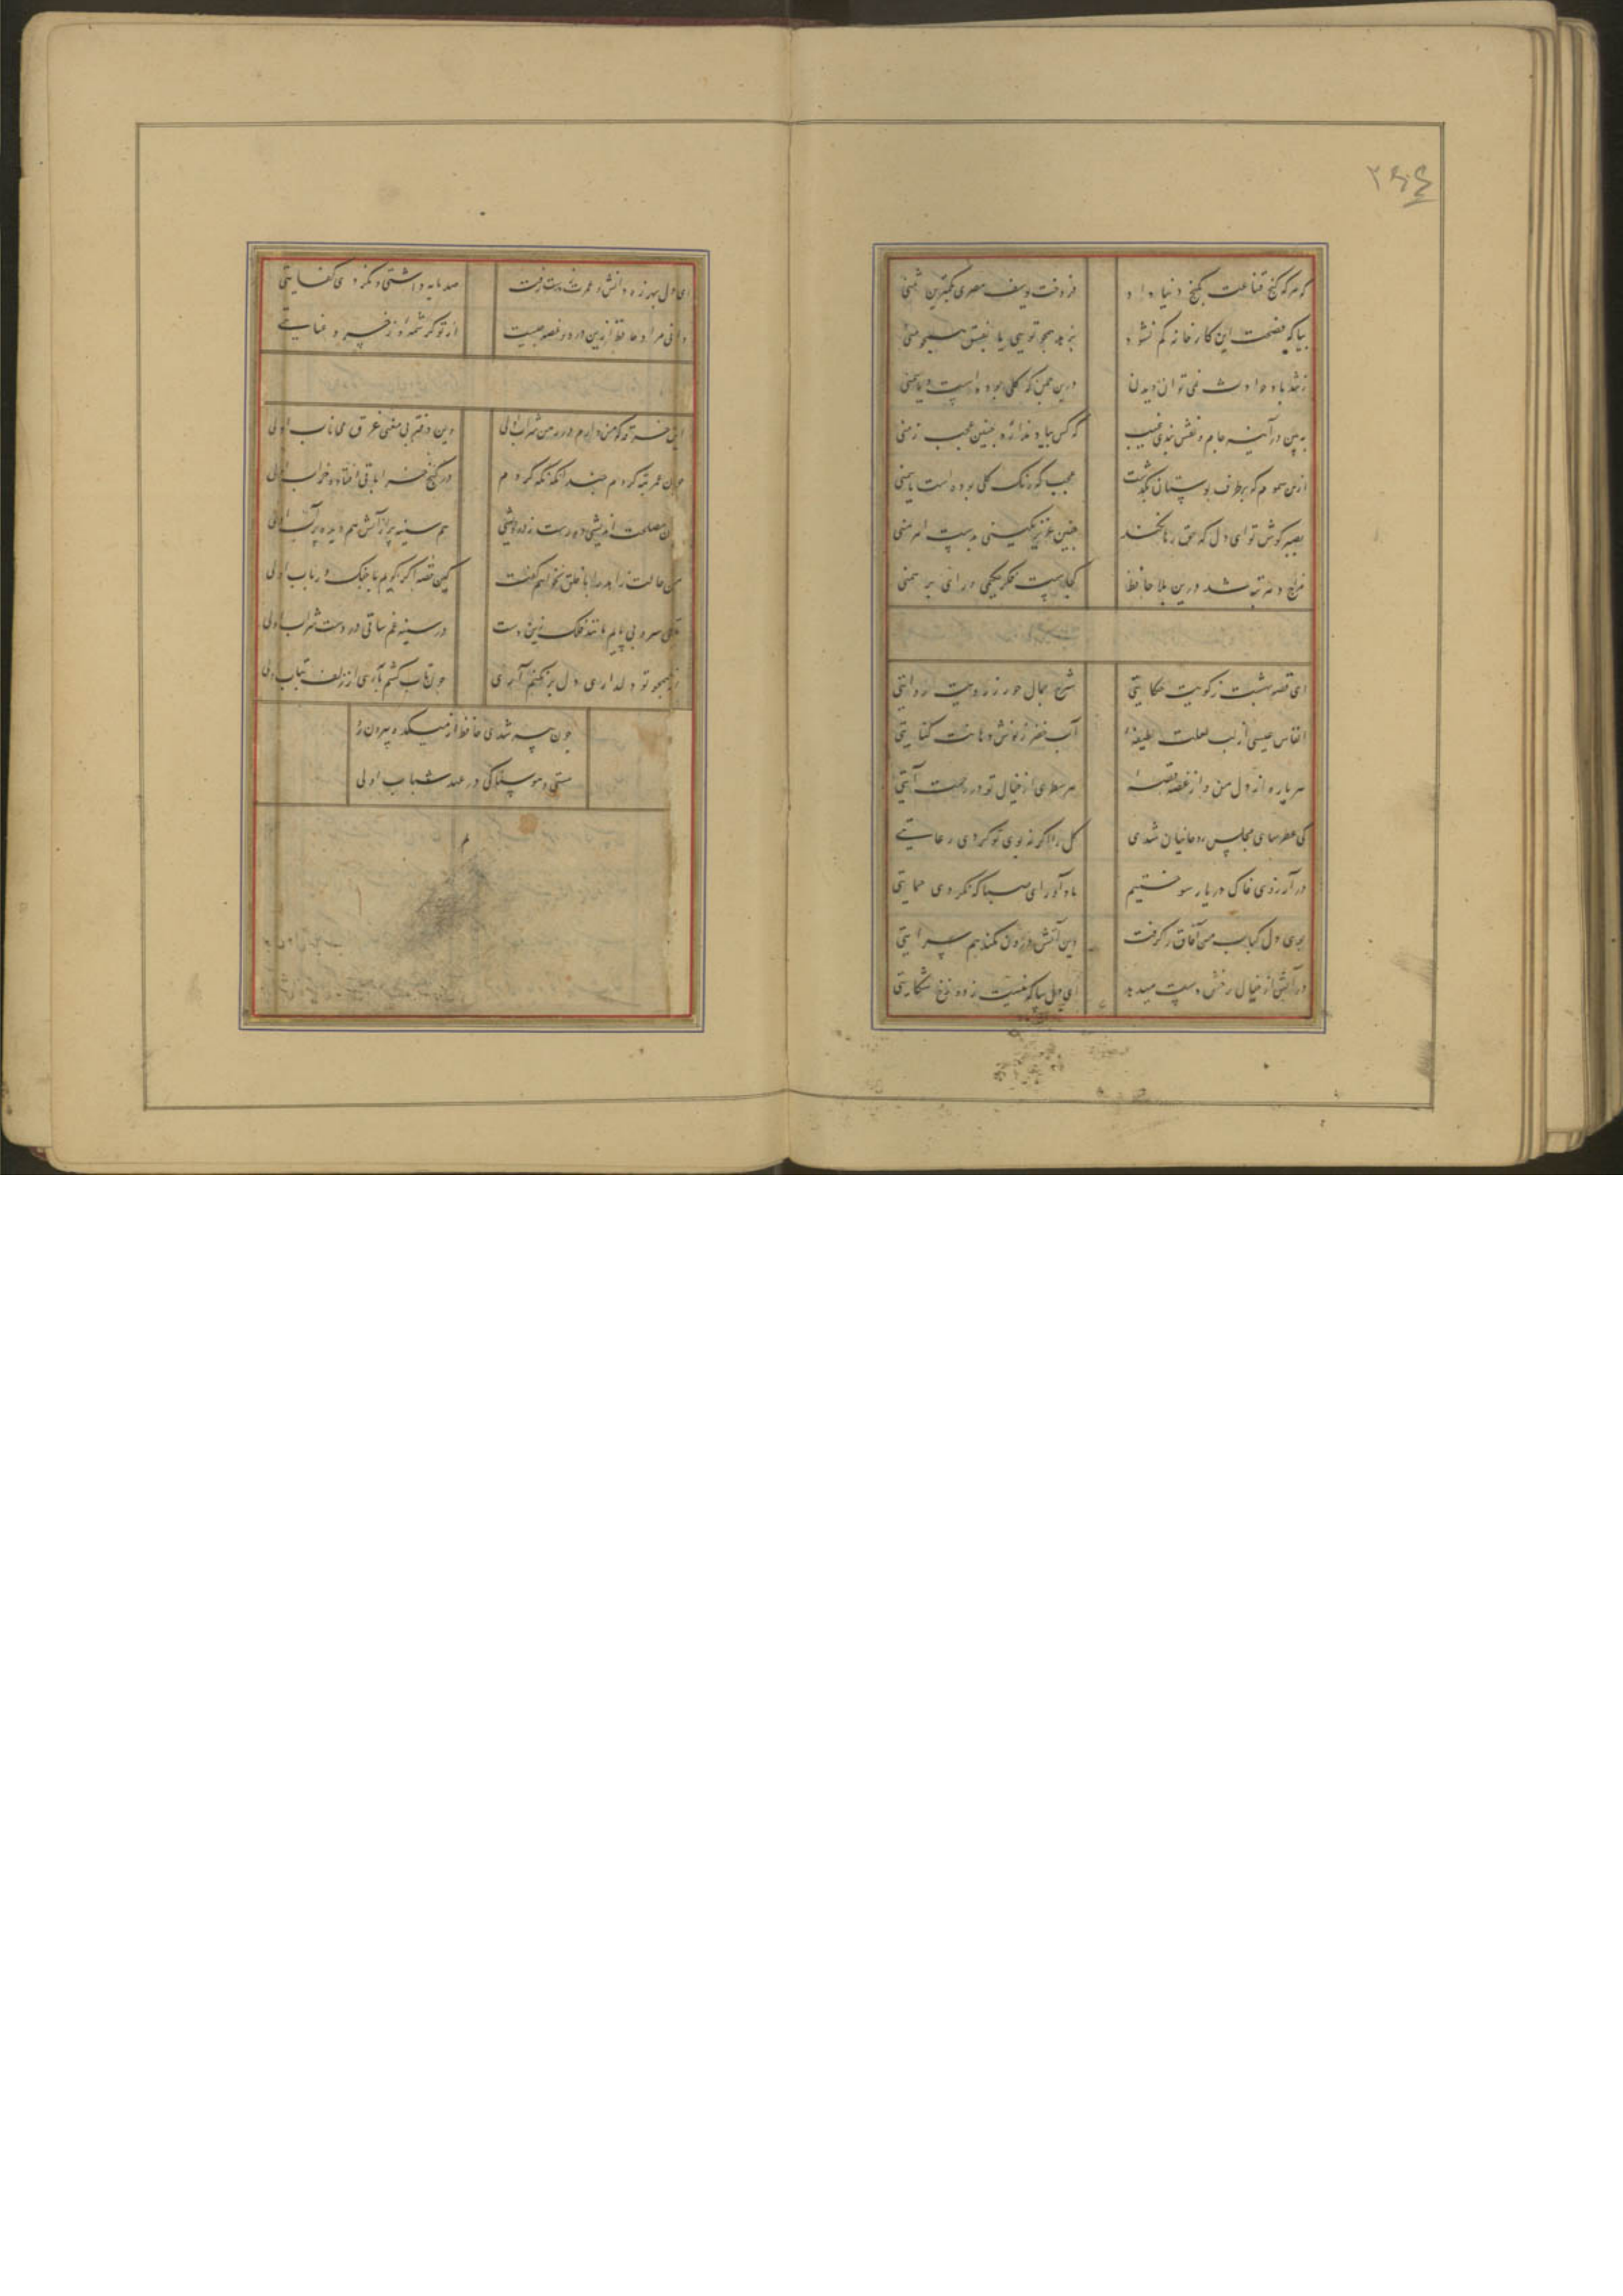 ۲۶۴
که هر که کنج قناعت بکنج دنیا داد
فروخت یوسف مصری بکمترین ثمنی
بیا که فسحت این کارخانه کم نشود
بزهد همچو تویی یا بفسق همچو منی
ز تندباد حوادث نمی توان دیدن
درین چمن که کلی بوده است یا سمنی
ببین در آینه جام و نقش بندی غیب
که کس بیاد ندارد چنین عجب زمنی
ازین سموم که بر طرف بوستان بکذشت
عجب که رنک کلی بوده است یاسمنی
بصبر کوش تو ای دل که حق رها نکند
چنین عزیز نکینی بدست اهرمنی
مزاج دهر تبه شد درین بلا حافظ
کجاست فکر حکیمی و رای برهمنی
ای قصه بهشت ز کویت حکایتی
شرح جمال حور ز رویت روایتی
انفاس عیسی از لب لعلت لطیفه
آب خضر ز نوش دهانت کنایتی
هر پاره از دل من و از غصه قصه
هر سطری از خیال تو در رحمت آیتی
کی عطرسای مجلس روحانیان شدی
کل را اکر نه بوی تو کردی رعایتی
در آرزوی خاک در یار سوختیم
یاد آور ای صبا که نکردی حمایتی
بوی دل کباب من آفاق را کرفت
وین آتش درون بکند هم سرایتی
در آتش از خیال رخش دست میدهد
ای دل بیا که نیست ز دوزخ شکایتی
ای دل بهرزه دانش و عمرت بدست رفت
صد مایه داشتی و نکردی کفایتی
دانی مراد حافظ ازین درد و غصه چیست
از تو کرشمه و ز خسرو عنایتی
این خرقه که من دارم در رهن شراب اولی
وین دفتر بی معنی غرق می ناب اولی
چون عمر تبه کردم چندانکه نکه کردم
در کنج خراباتی افتاده خراب اولی
چون مصلحت اندیشی دورست ز درویشی
هم سینه پر از آتش هم دیده پر آب اولی
من حالت زاهد را با خلق نخواهم کفت
کین قصه اکر کویم با چنک و رباب اولی
تا بی سر و بی پایم مانند فلک زین دست
در سینه غم ساقی در دست شراب اولی
از همچو تو دلداری دل بر نکنم آری
چون تاب کشم باری از زلف بتاب اولی
چون پیر شدی حافظ از میکده بیرون رو
مستی و هوسناکی در عهد شباب اولی